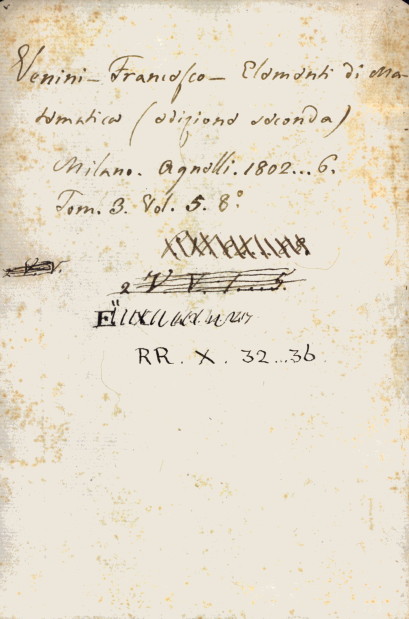 Venini - Francesco - Elementi di Ma-
tematica (edizione seconda)
Milano. Agnelli. 1802...6.
Tom. 3. Vol. 5. 8°
2 V. V. 1....5.
RR. X. 32...36